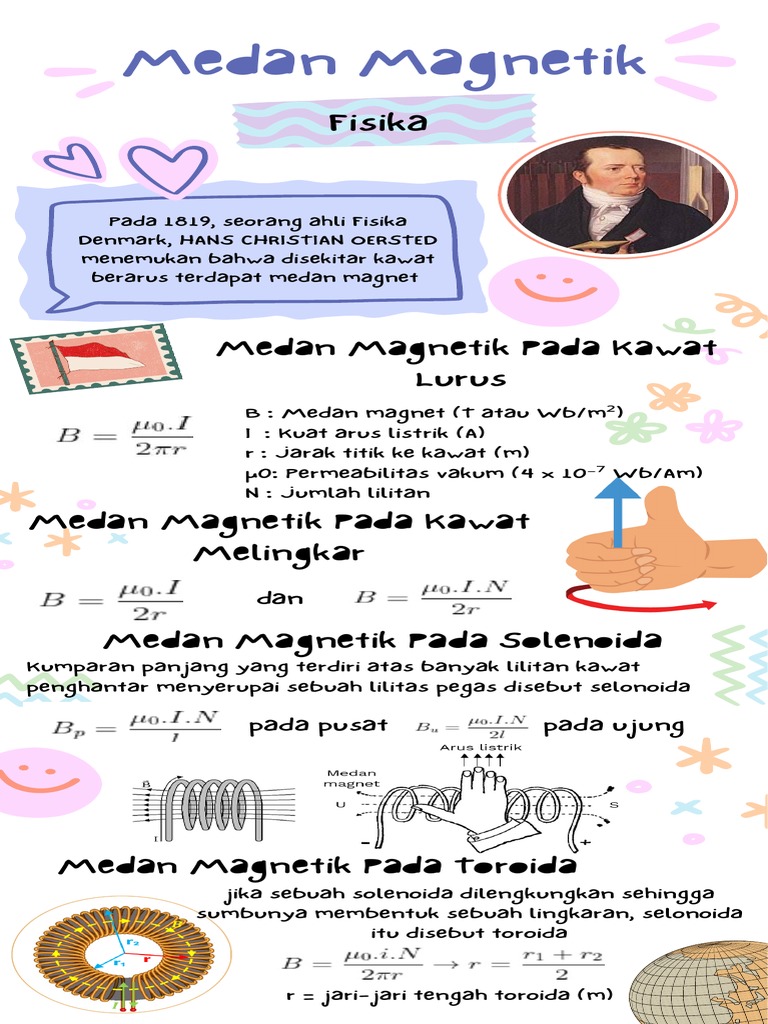 Medan Magnetik
Fisika
Pada 1819, seorang ahli Fisika
Denmark, HANS CHRISTIAN OERSTED
menemukan bahwa disekitar kawat
berarus terdapat medan magnet
Medan Magnetik Pada Kawat
Lurus
B = μ₀.I / 2πr
B : Medan magnet (T atau Wb/m²)
I : Kuat arus listrik (A)
r : Jarak titik ke kawat (m)
μ0: Permeabilitas vakum (4 x 10⁻⁷ Wb/Am)
N : Jumlah lilitan
Medan Magnetik Pada Kawat
Melingkar
B = μ₀.I / 2r dan B = μ₀.I.N / 2r
Medan Magnetik Pada Solenoida
Kumparan panjang yang terdiri atas banyak lilitan kawat
penghantar menyerupai sebuah lilitas pegas disebut selonoida
Bₚ = μ₀.I.N / l pada pusat Bᵤ = μ₀.I.N / 2l pada ujung
Arus listrik
Medan
magnet
B
U S
I
- +
Medan Magnetik Pada Toroida
jika sebuah solenoida dilengkungkan sehingga
sumbunya membentuk sebuah lingkaran, selonoida
itu disebut toroida
B = μ₀.i.N / 2πr → r = r₁ + r₂ / 2
r = jari-jari tengah toroida (m)
B
r₂
r₁ r
I